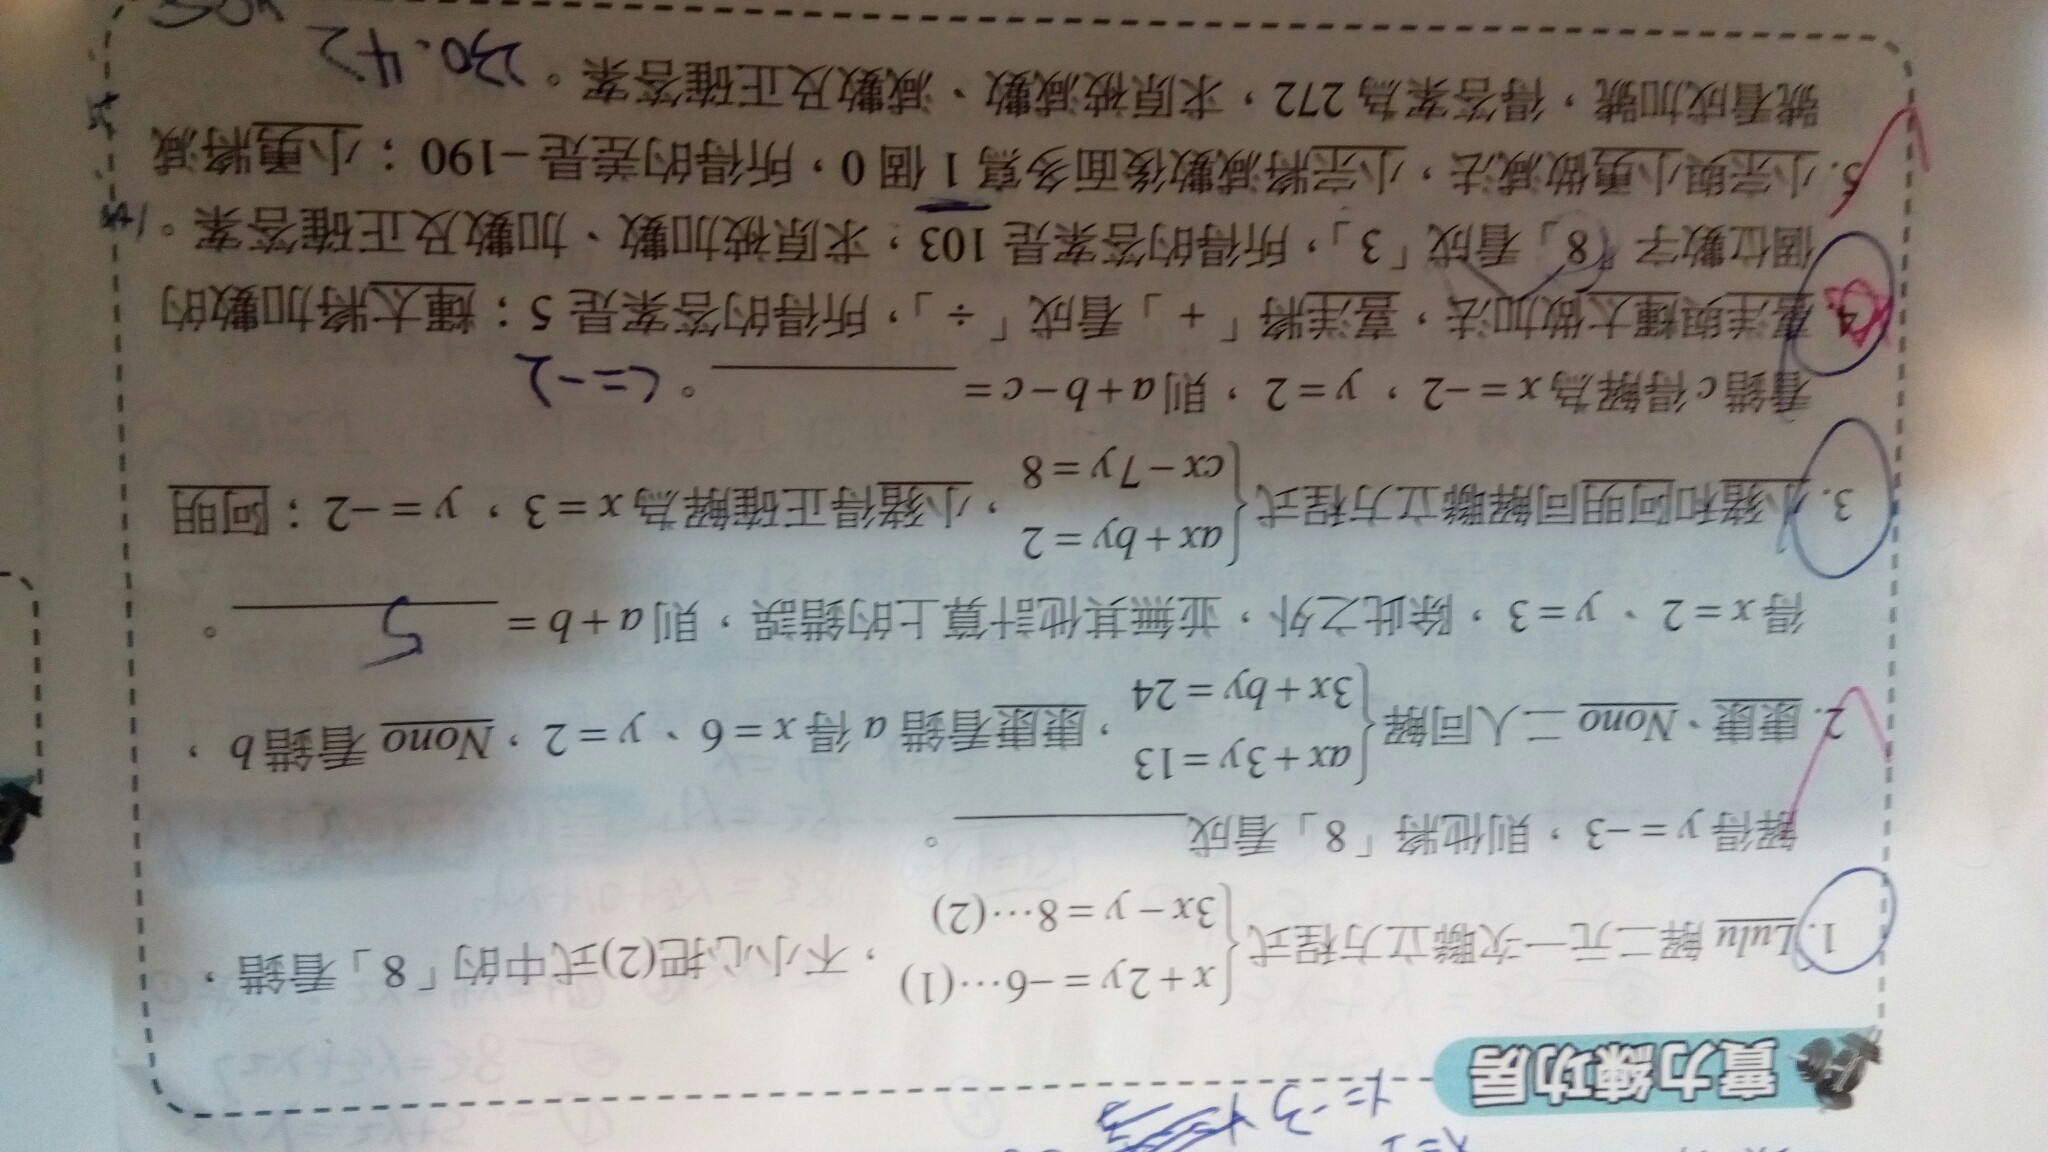 實力練功房
1. Lulu 解二元一次聯立方程式{x+2y=-6…(1)
3x-y=8…(2)，不小心把(2)式中的「8」看錯，
解得 y=-3，則他將「8」看成________。
2. 康康、Nono 二人同解{ax+3y=13
3x+by=24，康康看錯 a 得 x=6、y=2，Nono 看錯 b，
得 x=2、y=3，除此之外，並無其他計算上的錯誤，則 a+b= 5 。
3. 小豬和阿明同解聯立方程式{ax+by=2
cx-7y=8，小豬得正確解為 x=3，y=-2；阿明
看錯 c 得解為 x=-2，y=2，則 a+b-c=________。 c=-2
4. 喜洋與輝太做加法，喜洋將「+」看成「÷」，所得的答案是 5；輝太將加數的
個位數字「8」看成「3」，所得的答案是 103，求原被加數、加數及正確答案。
5. 小宗與小勇做減法，小宗將減數後面多寫 1 個 0，所得的差是-190；小勇將減
號看成加號，得答案為 272，求原被減數、減數及正確答案。 230.42